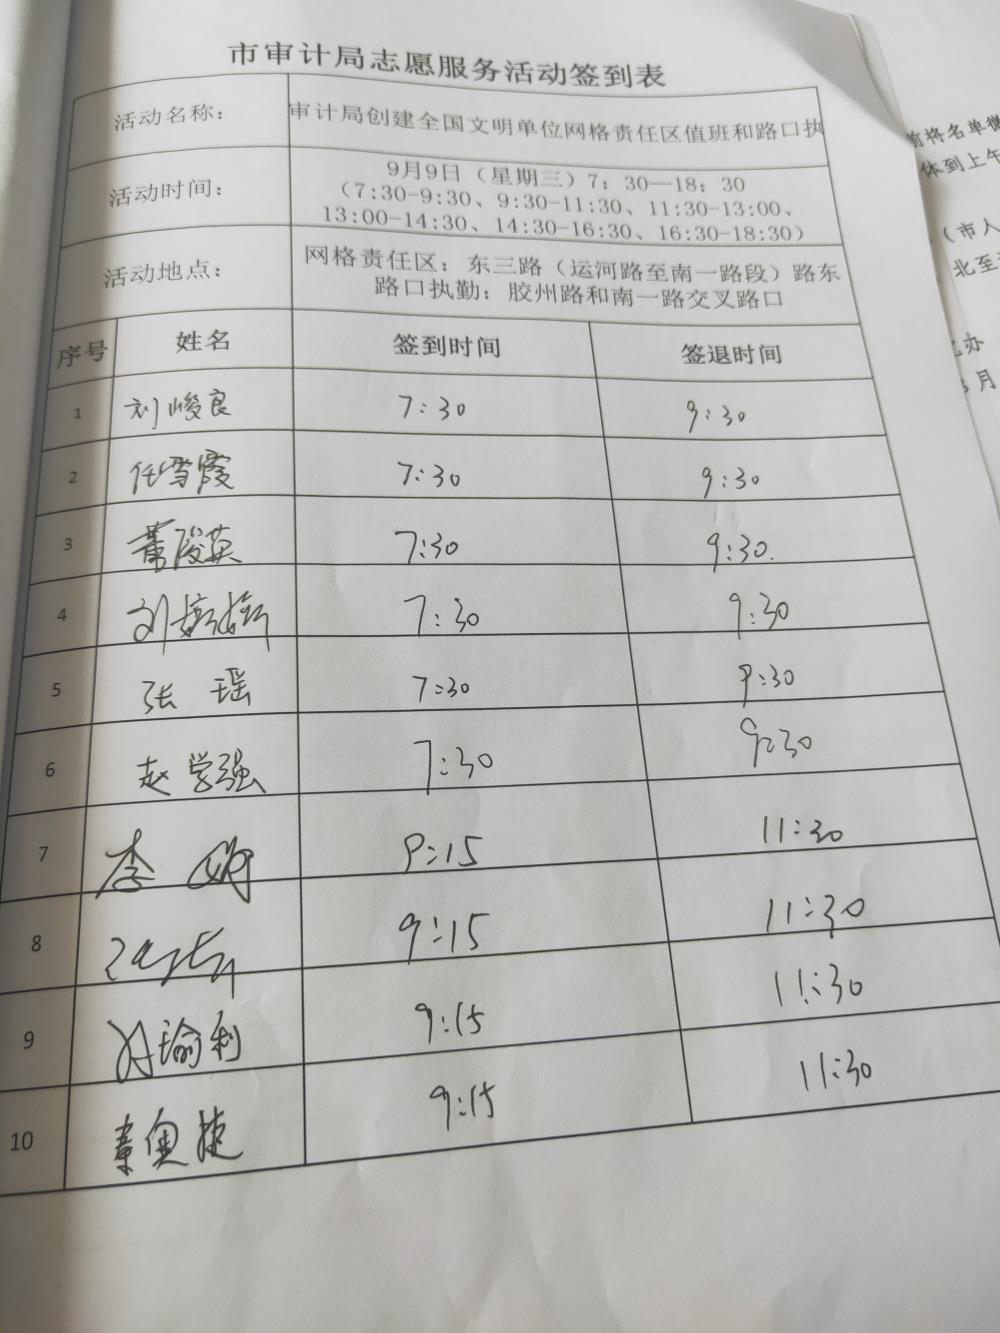 市审计局志愿服务活动签到表
活动名称： 审计局创建全国文明单位网格责任区值班和路口执
活动时间： 9月9日（星期三）7：30—18：30
（7:30-9:30、9:30-11:30、11:30-13:00、
13:00-14:30、14:30-16:30、16:30-18:30）
活动地点： 网格责任区：东三路（运河路至南一路段）路东
路口执勤：胶州路和南一路交叉路口
序号 姓名 签到时间 签退时间
1 刘峻良 7:30 9:30
2 任雪霞 7:30 9:30
3 7:30 9:30.
4 刘婷婷 7:30 9:30
5 张瑶 7:30 9:30
6 赵学强 7:30 9:30
7 李 9:15 11:30
8 9:15 11:30
9 瑜利 9:15 11:30
10 秦奥捷 9:15 11:30
前将名单微
体到上午
（市人
北至
办
月